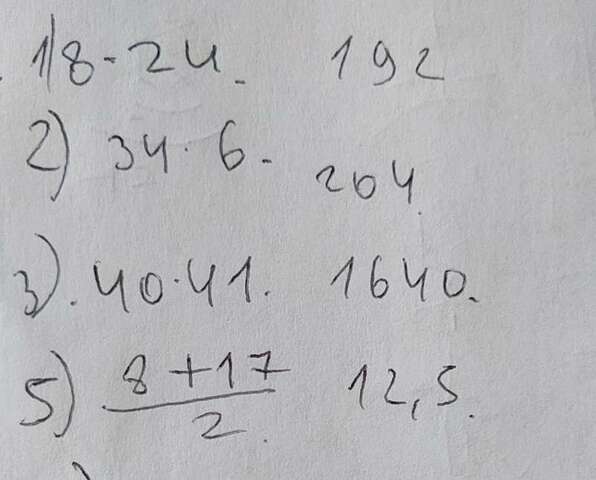 1) 8 · 24. 192
2) 34 · 6. 204.
3) . 40 · 41. 1640.
5) 8 + 17 12,5.
2.
)